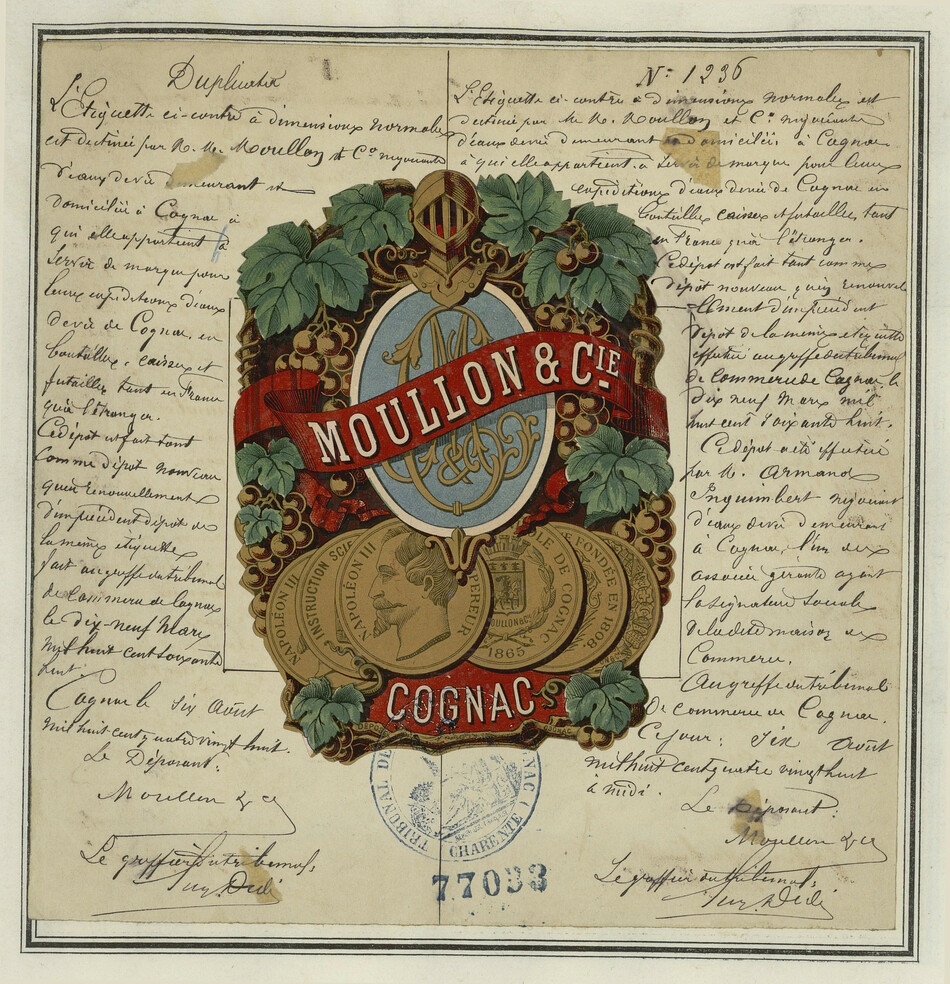 Duplicata
L'Etiquette ci-contre à dimensions normales
est destinée par M. M. Moullon et Cº négociants
d'eaux de vie demeurant et
domiciliés à Cognac à
qui elle appartient à
servir de marque pour
leurs expéditions d'eaux
de vie de Cognac en
bouteilles, caisses et
futailles tant en France
qu'à l'étranger.
Ce dépôt est fait tant
comme dépôt nouveau
qu'en renouvellement
d'un précédent dépôt de
la même étiquette
fait au greffe du tribunal
de commerce de Cognac
le dix-neuf Mars
mil huit cent soixante
huit.
Cognac le six Août
mil huit cent quatre vingt huit.
Le Déposant:
Moullon & Cº
Le greffier du tribunal,
Nº 1236
L'Etiquette ci-contre à dimensions normales est
destinée par M. M. Moullon et Cº négociants
d'eaux de vie demeurant et domiciliés à Cognac
à qui elle appartient à servir de marque pour leurs
expéditions d'eaux de vie de Cognac en
bouteilles caisses et futailles, tant
en France qu'à l'étranger.
Ce dépôt est fait tant comme
dépôt nouveau qu'en renouvel
lement d'un précédent
dépôt de la même étiquette
effectué au greffe du tribunal
de commerce de Cognac le
dix neuf Mars mil
huit cent soixante huit.
Ce dépôt a été effectué
par M. Armand
Inquimbert négociant
d'eaux de vie demeurant
à Cognac, l'un des
associés gérants ayant
la signature sociale
de la dite maison de
Commerce.
Au greffe du tribunal
de commerce de Cognac.
Ce jour: six Août
mil huit cent quatre vingt huit
à midi.
Le Déposant:
Moullon & Cº
Le greffier du tribunal,
MOULLON & CIE
NAPOLÉON III
INSTRUCTION SCIE
NAPOLÉON III
PEREUR
OLE DE COGNAC
MOULLONAC
1865
FONDÉE EN 1808
COGNAC
TRIBUNAL DE
GNAC
CHARENTE
77033